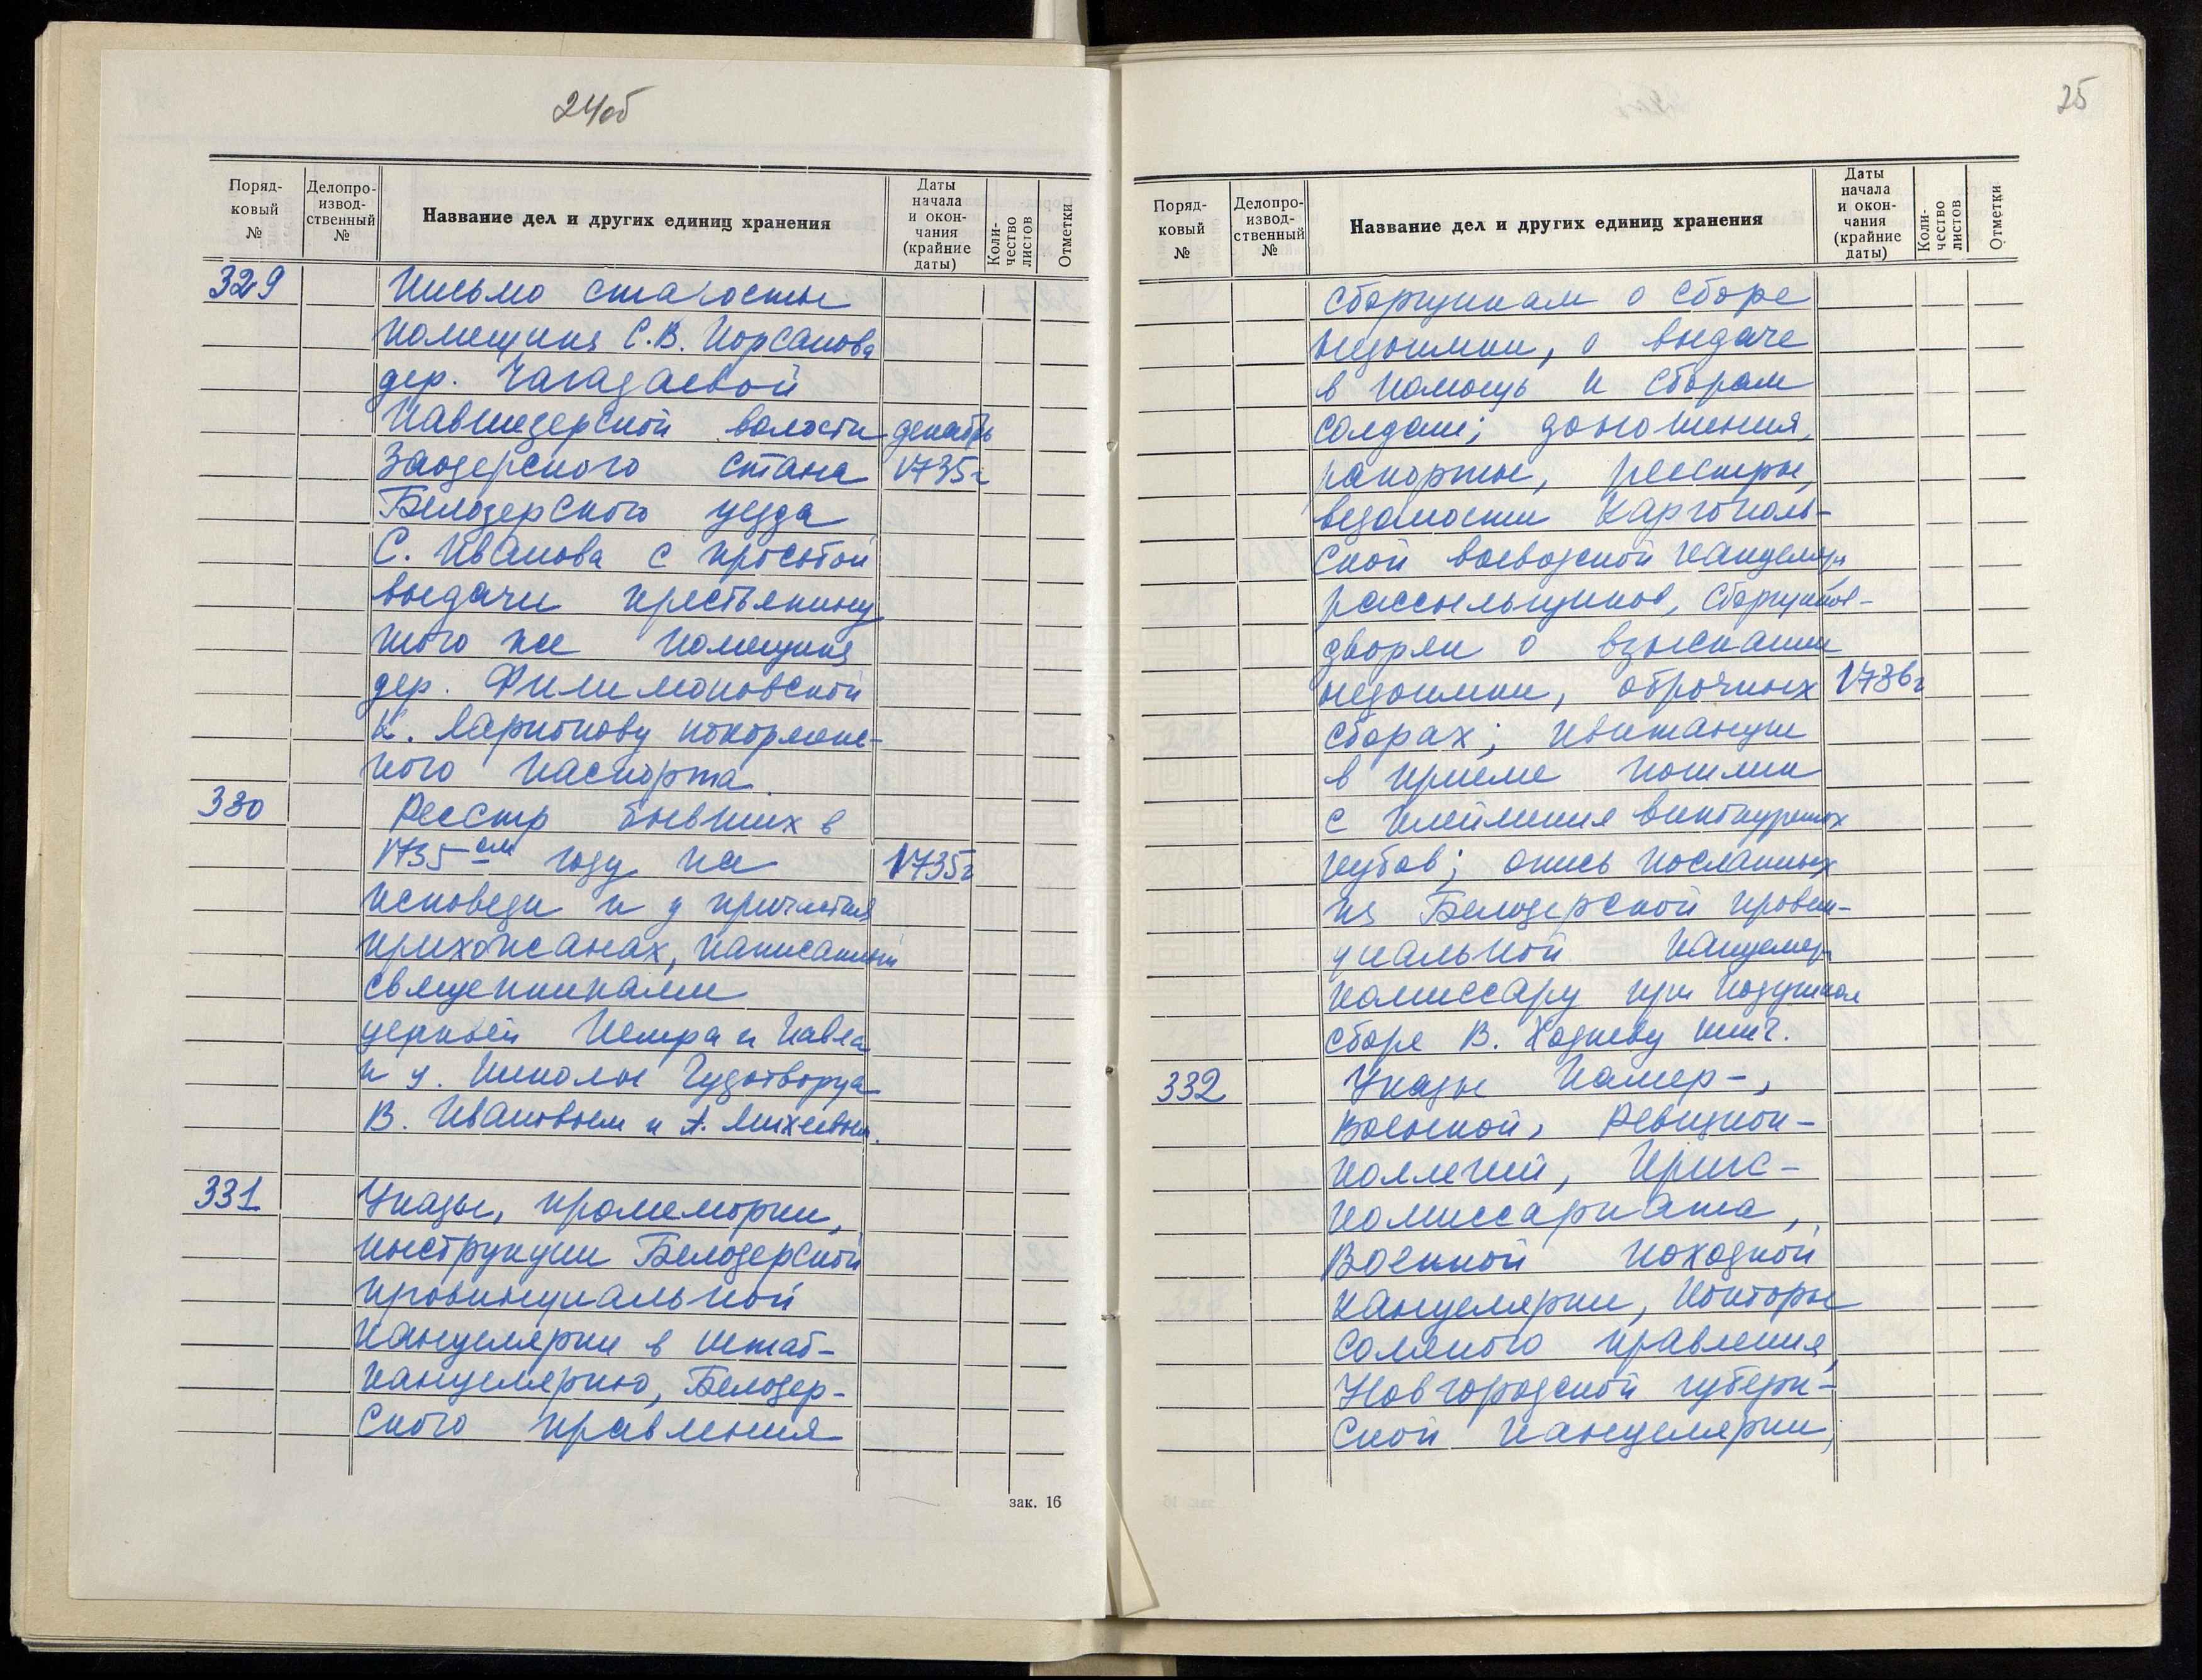 24об
Поряд-
ковый
№
Делопро-
извод-
ственный
№
Название дел и других единиц хранения
Даты
начала
и окон-
чания
(крайние
даты)
Коли-
чество
листов
Отметки
329 Письмо старосты
помещика С.В. Корсакова
дер. Чагадаевой
декабрь
Заозерского стана 1735г
Белозерского уезда
С. Иванова с просьбой
выдачи крестьянину
того же помещика
дер. Филимоновской
К. Ларионову покормеже-
ного паспорта.
330 Реестр бывших в
1735ом году на 1735г
исповеди и у причастия
прихожанах, написанный
священниками
церквей Петра и Павла
и ц. Николы Чудотворца
В. Ивановым и А. Михеевым.
331 Указы, промемории,
инструкции Белозерской
провинциальной
канцелярии в штаб-
канцелярию, Белозер-
ского правления
зак. 16
25
Поряд-
ковый
№
Делопро-
извод-
ственный
№
Название дел и других единиц хранения
Даты
начала
и окон-
чания
(крайние
даты)
Коли-
чество
листов
Отметки
сборщикам о сборе
недоимки, о выдаче
в помощь к сборам
солдат; доношения,
рапорты, реестры,
ведомости Каргополь-
ской воеводской канцеляр.
рассыльщиков, сборщиков-
дворян о взыскании
недоимки, оброчных 1736г
сборах; квитанции
в приеме пошлин
с клеймения винокуренных
кубов; опись посланных
из Белозерской провин-
циальной канцеляр.
комиссару при подушном
сборе В. Ходневу книг.
332 Указы Камер-,
Военной, Ревизион-
коллегий, Кригс-
комиссариата,
Военной походной
канцелярии, Конторы
соляного правления,
Новгородской губерн-
ской канцелярии,